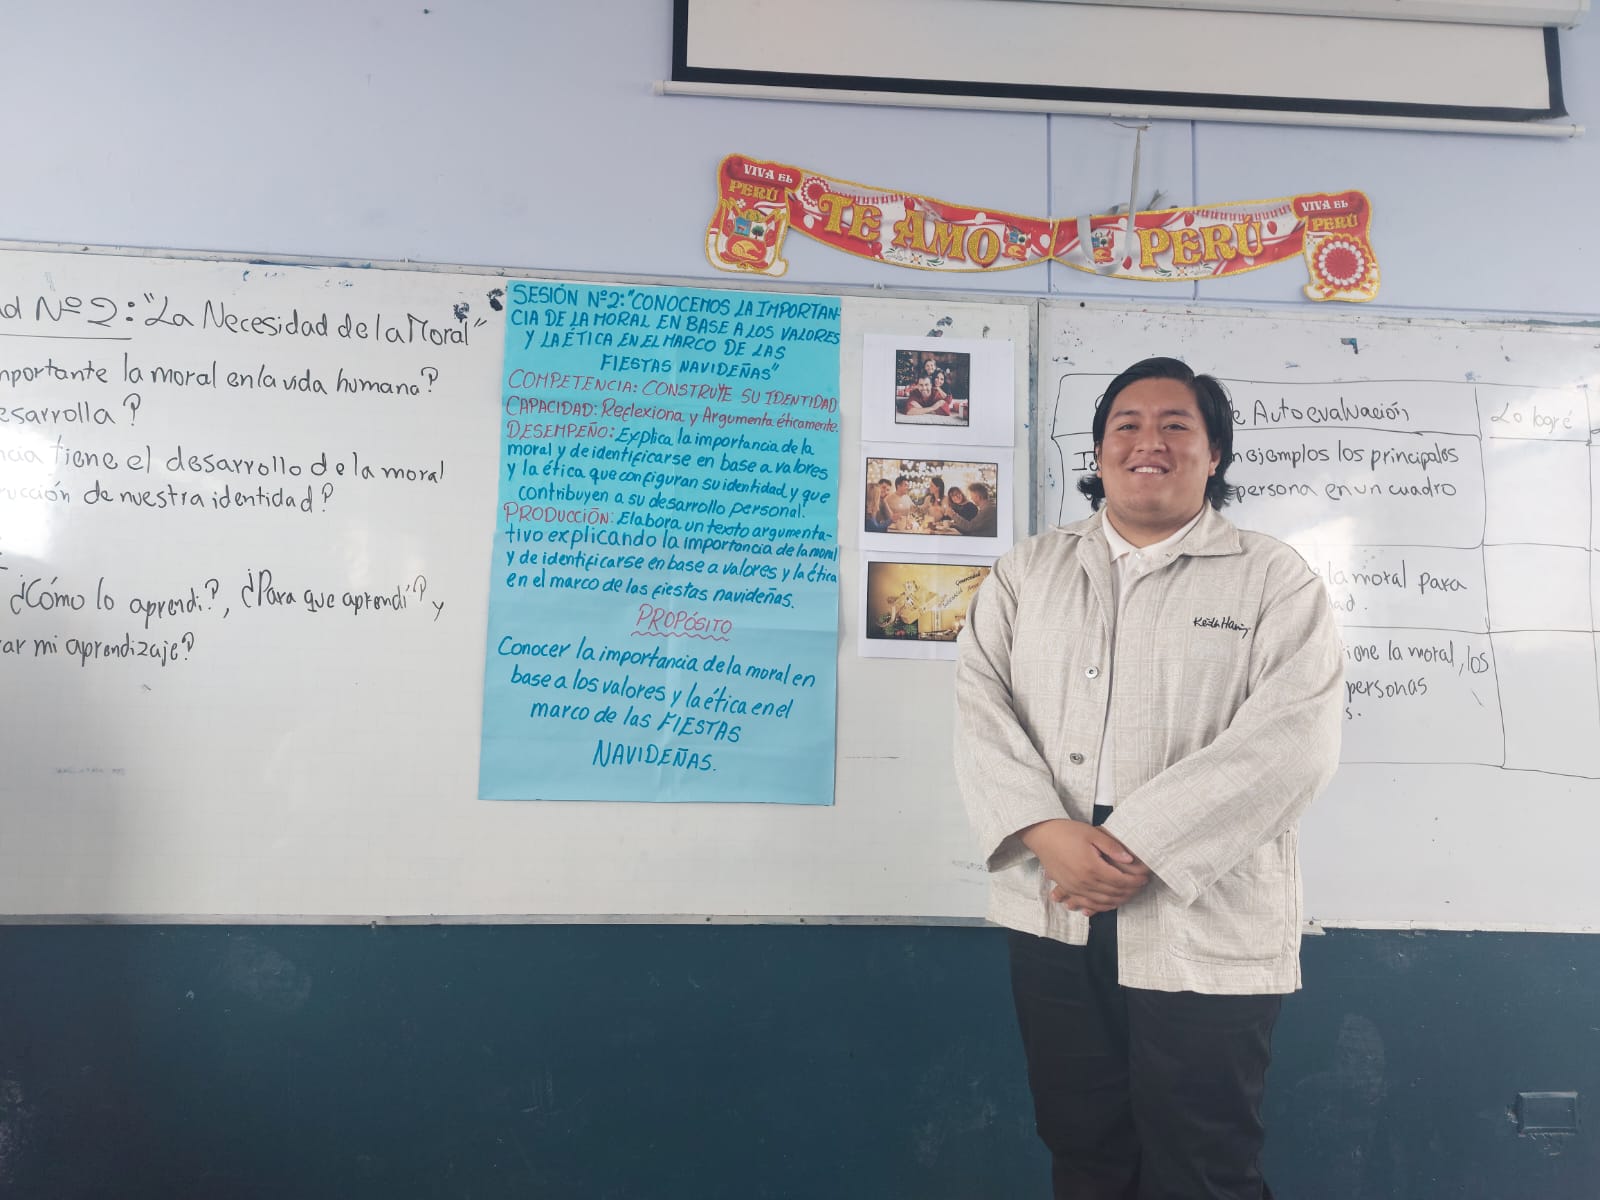 VIVA EL
PERÚ
TE AMO
PERÚ
VIVA EL
PERÚ
Nº2: "La Necesidad de la Moral"
la moral en la vida humana?
tiene el desarrollo de la moral
de nuestra identidad?
¿Cómo lo aprendí?, ¿Para que aprendí? y
mi aprendizaje?
SESIÓN Nº2: "CONOCEMOS LA IMPORTAN-
CIA DE LA MORAL EN BASE A LOS VALORES
Y LA ÉTICA EN EL MARCO DE LAS
FIESTAS NAVIDEÑAS"
COMPETENCIA: CONSTRUYE SU IDENTIDAD
CAPACIDAD: Reflexiona y Argumenta éticamente.
DESEMPEÑO: Explica la importancia de la
moral y de identificarse en base a valores
y la ética que configuran su identidad, y que
contribuyen a su desarrollo personal.
PRODUCCIÓN: Elabora un texto argumenta-
tivo explicando la importancia de la moral
y de identificarse en base a valores y la ética
en el marco de las fiestas navideñas.
PROPÓSITO
Conocer la importancia de la moral en
base a los valores y la ética en el
marco de las FIESTAS
NAVIDEÑAS.
de Autoevaluación
Lo logré
ejemplos los principales
persona en un cuadro
la moral para
la moral, los
personas
Keith Haring